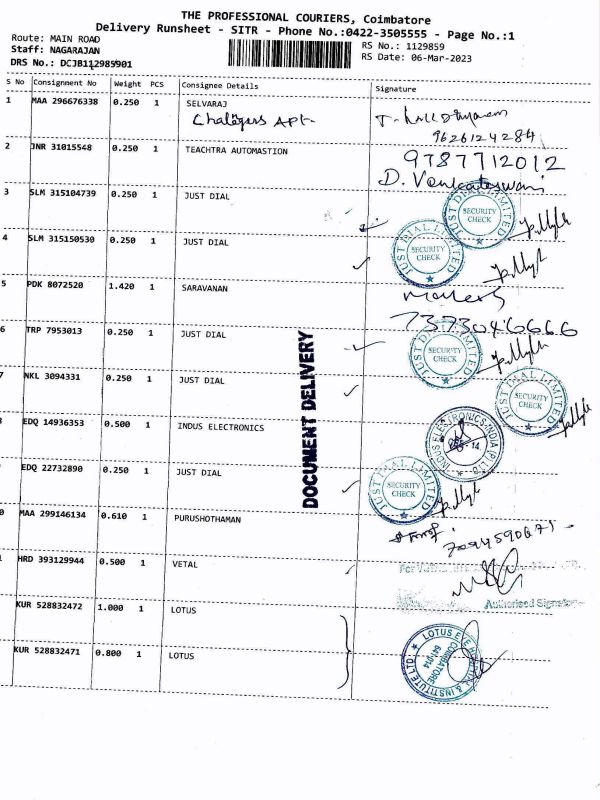 THE PROFESSIONAL COURIERS, Coimbatore
Delivery Runsheet - SITR - Phone No.:0422-3505555 - Page No.:1
Route: MAIN ROAD
Staff: NAGARAJAN
DRS No.: DCJB112989901
RS No.: 1129859
RS Date: 06-Mar-2023
S No Consignment No Weight PCS Consignee Details Signature
1 MAA 296676338 0.250 1 SELVARAJ
Apt-
9626124284
2 JNR 31015548 0.250 1 TEACHTRA AUTOMASTION 9787712012
D. Venkateswari
3 SLM 315104739 0.250 1 JUST DIAL
JUST DIAL LIMITED SECURITY CHECK
4 SLM 315150530 0.250 1 JUST DIAL
JUST DIAL LIMITED SECURITY CHECK
5 PDK 8072520 1.420 1 SARAVANAN
7373046666
6 TRP 7953013 0.250 1 JUST DIAL
JUST DIAL LIMITED SECURITY CHECK
7 NKL 3094331 0.250 1 JUST DIAL
JUST DIAL LIMITED SECURITY CHECK
DOCUMENT DELIVERY
EDQ 14936353 0.500 1 INDUS ELECTRONICS
INDUS ELECTRONICS INDIA (P) LTD
EDQ 22732890 0.250 1 JUST DIAL
JUST DIAL LIMITED SECURITY CHECK
0 MAA 299146134 0.610 1 PURUSHOTHAMAN
HRD 393129944 0.500 1 VETAL
Authorised
KUR 528832472 1.000 1 LOTUS
KUR 528832471 0.800 1 LOTUS
LOTUS EYE HOSPITAL & INSTITUTE LTD COIMBATORE 641014